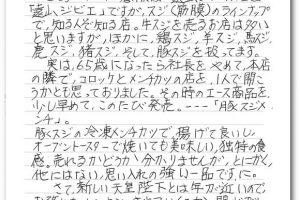 「遠山ジビエ」ですが、スジ(筋膜)のラインナップ
で、知る人ぞ知る店。牛スジを売るお店は多い
と思いますが、ほかに、鶏スジ、羊スジ、馬スジ、
鹿スジ、猪スジ、そして、豚スジを扱ってます。
実は、65歳になったら社長をやめて、本店
の隣で、コロッケとメンチカツの店を、1人で開こ
うかとも思っておりました。その時のエース商品を
少し早めて、このたび発売。---「豚スジメ
ンチ」。
豚スジの冷凍メンチカツで、揚げて良いし
オーブントースターで焼いても美味しい、独特の食
感。売れるかどうか分かりませんが、とにかく、
他にはない、思い入れの強い一品ですに。
さて、新しい天皇陛下とは年が近いので